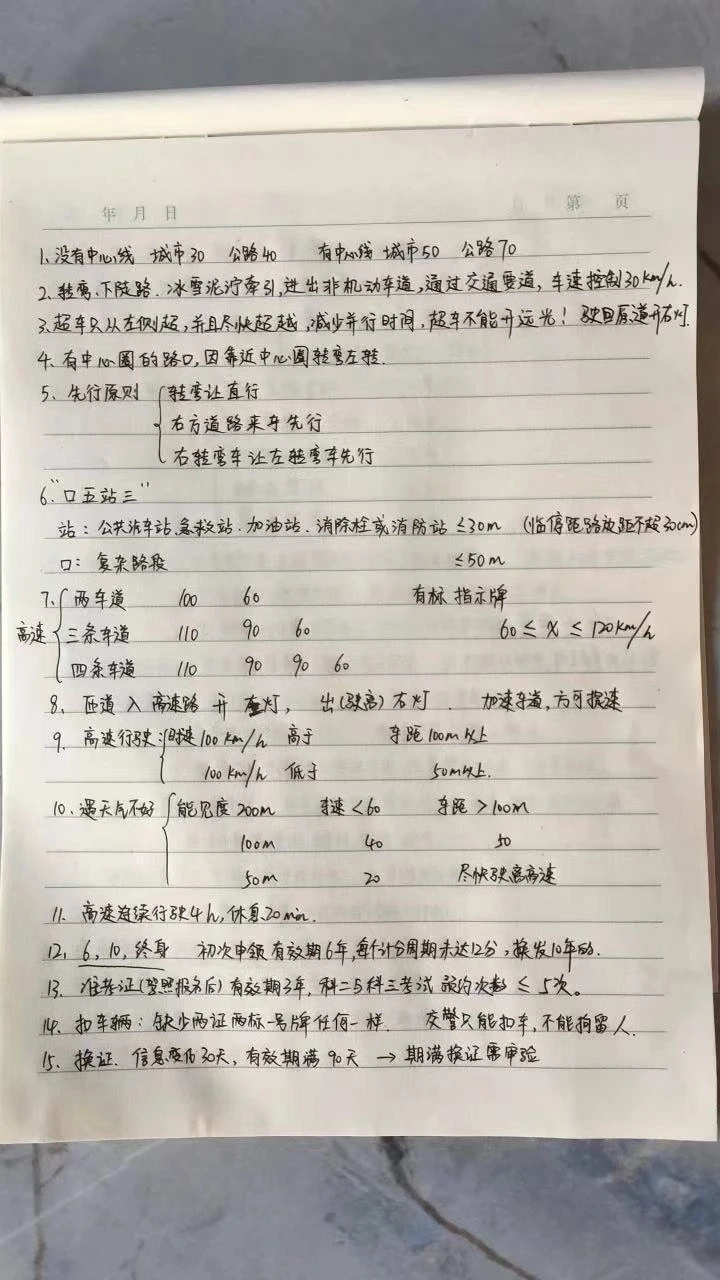 年 月 日 第 页
1、没有中心线 城市30 公路40 有中心线 城市50 公路70
2、转弯、下陡路、冰雪泥泞牵引,进出非机动车道,通过交通要道,车速控制30km/h.
3、超车只从左侧超,并且尽快超越,减少并行时间,超车不能开远光!驶回原道开右灯.
4、有中心圈的路口,因靠近中心圈转弯左转.
5、先行原则 转弯让直行
右方道路来车先行
右转弯车让左转弯车先行
6、"口五站三"
站:公共汽车站、急救站、加油站、消除栓或消防站≤30m (临停距路边距不超30cm)
口:复杂路段 ≤50m
7、两车道 100 60 有标 指示牌
高速 三条车道 110 90 60 60≤x≤120km/h
四条车道 110 90 90 60
8、匝道入高速路 开左灯, 出(驶离)右灯. 加速车道,方可提速
9、高速行驶:时速100km/h 高于 车距100m以上
100km/h 低于 50m以上.
10、遇天气不好 能见度200m 车速<60 车距>100m
100m 40 50
50m 20 尽快驶离高速
11、高速连续行驶4h,休息20min.
12、6,10,终身 初次申领有效期6年,每个计分周期未达12分,换发10年的.
13、准考证(驾照报名后)有效期3年,科二与科三考试预约次数≤5次。
14、扣车辆:缺少两证两标一号牌任何一样. 交警只能扣车,不能拘留人.
15、换证. 信息变化30天,有效期满90天 → 期满换证需审验